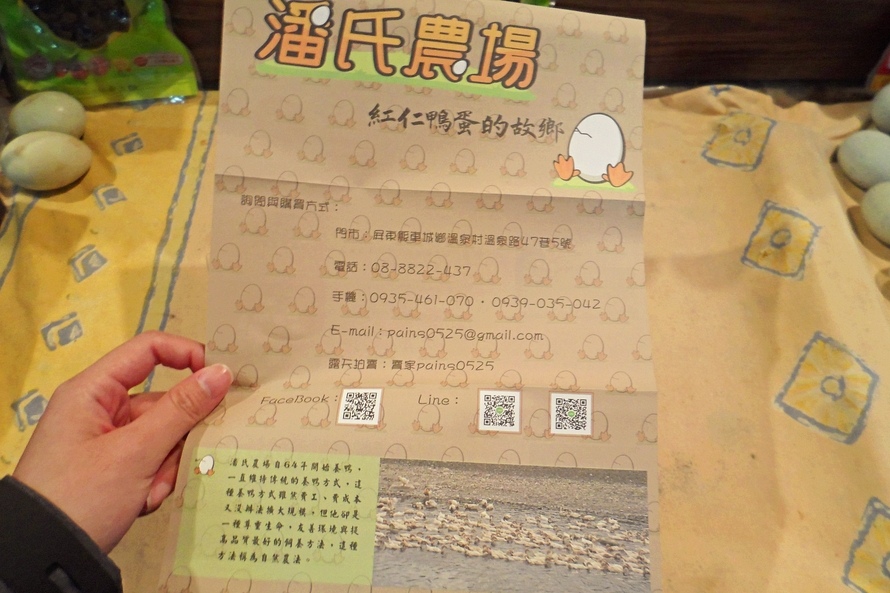 潘氏農場
紅仁鴨蛋的故鄉
詢問與購買方式：
門市：屏東縣車城鄉溫泉村溫泉路47巷5號
電話：08-8822-437
手機：0935-461-070・0939-035-042
E-mail：pains0525@gmail.com
露天拍賣：賣家pains0525
FaceBook：
Line：
潘氏農場自64年開始養鴨，
一直維持傳統的養鴨方式，這
種養鴨方式雖然費工、費成本
又沒辦法擴大規模，但他卻是
一種尊重生命，友善環境與提
高品質最好的飼養方法，這種
方法稱為自然農法。